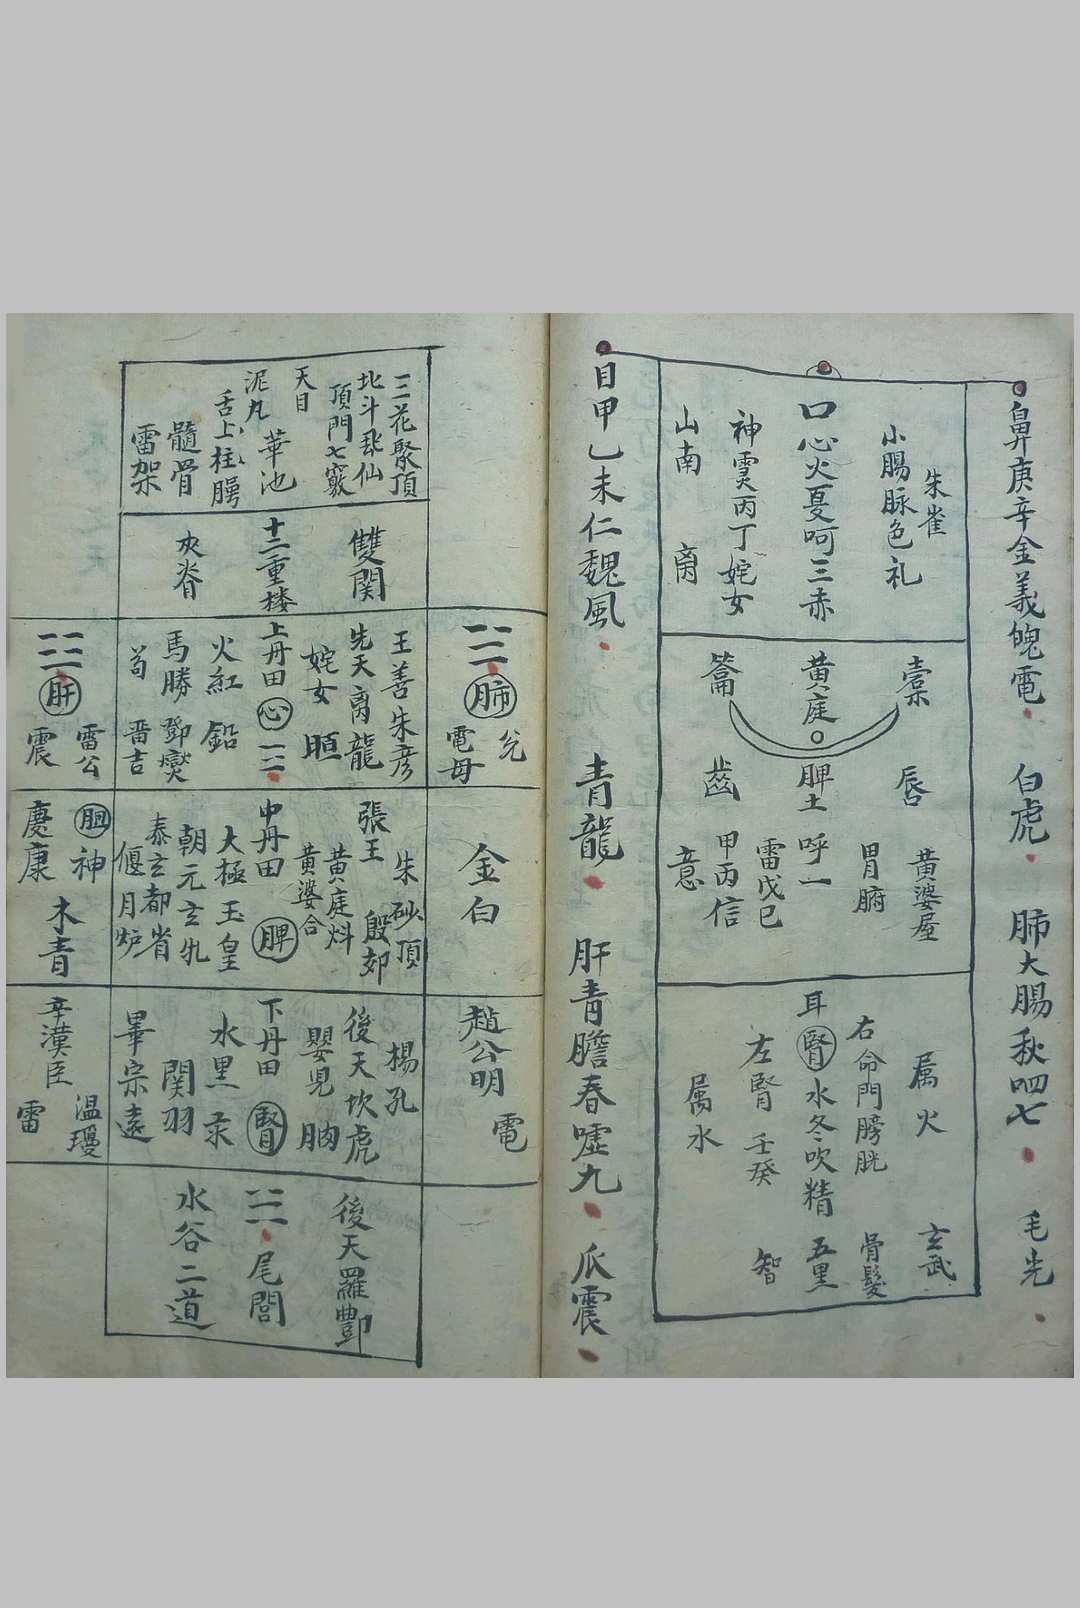 鼻庚辛金義魄電
白虎
肺大腸秋呬七
毛光
朱雀
小腸脉色礼
口心火夏呵三赤
神霊丙丁姹女
山南
唇
黄庭
脾土呼一
齒
黄婆屋
胃腑
雷戊己
甲丙信
意
属火
玄武
右命門膀胱
骨髮
耳腎水冬吹精
五里
左腎壬癸
智
属水
目甲乙未仁魏風
青龍
肝青膽春噓九
爪震
三花聚頂
北斗
仙
頂門七竅
天目
泥丸
華池
舌上柱腭
髓骨
雷架
雙関
十二重楼
夾脊
肺
兌
電母
王善朱彦
先天离龍
姹女
上丹田
心
火紅鉛
馬勝
鄧燮
晋吉
肝
雷公
震
金白
朱砂頂
張王
殷郊
黄庭
黄婆合
中丹田
脾
大極玉皇
朝元玄
泰玄都省
偃月炉
胆神
木青
慶康
趙公明
電
楊孔
後天坎虎
嬰児
下丹田
腎
水里
関羽
畢宗遠
辛漢臣
温瓊
雷
後天羅酆
尾閭
水谷二道